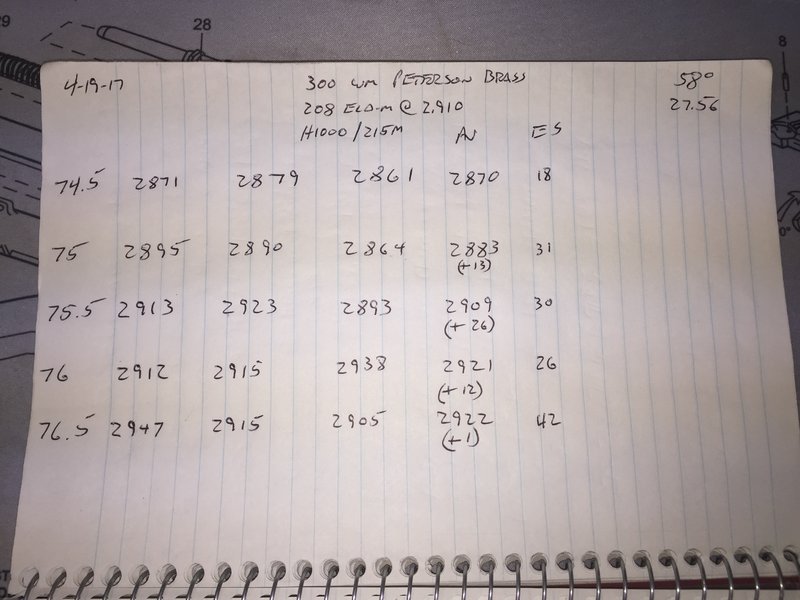 29
28
8
4-19-17 300 WM PETERSON BRASS 58°
208 ELD-M @ 2.910 27.56
H1000/215M AV ES
74.5 2871 2879 2861 2870 18
75 2895 2890 2864 2883 31
(+13)
75.5 2913 2923 2893 2909 30
(+26)
76 2912 2915 2938 2921 26
(+12)
76.5 2947 2915 2905 2922 42
(+1)